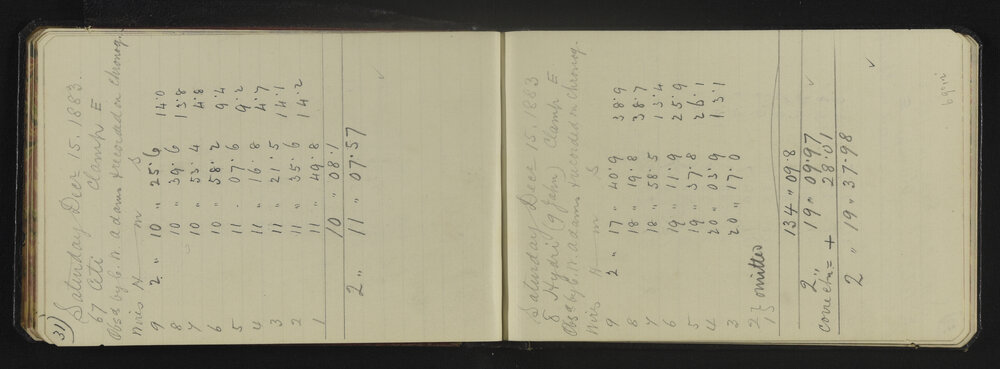 31) Saturday Decr 15. 1883.
67 Ceti Clamp E
Obsd by C. N. Adams & recorded on chronog.
Wires H m S
9 2 " 10 " 25.6 14.0
8 10 " 39.6 13.8
7 10 " 53.4 4.8
6 10 " 58.2 9.4
5 11 . 07.6 9.2
4 11 " 16.8 4.7
3 11 " 21.5 14.1
2 11 " 35.6 14.2
1 11 " 49.8
10 " 08.1
2 " 11 " 07.57 ✓
Saturday Decr 15. 1883
δ Hydri Clamp E
Obsd by C. N. Adams & recorded on chronog.
Wires H m S
9 2 " 17 " 40.9 38.9
8 18 " 19.8 38.7
7 18 " 58.5 13.4
6 19 " 11.9 25.9
5 19 " 37.8 26.1
4 20 " 03.9 13.1
3 20 " 17.0
2 } omitted
1
134 " 09.8
2 " 19 " 09.97 ✓
correctn = + 28.01
2 " 19 " 37.98 ✓